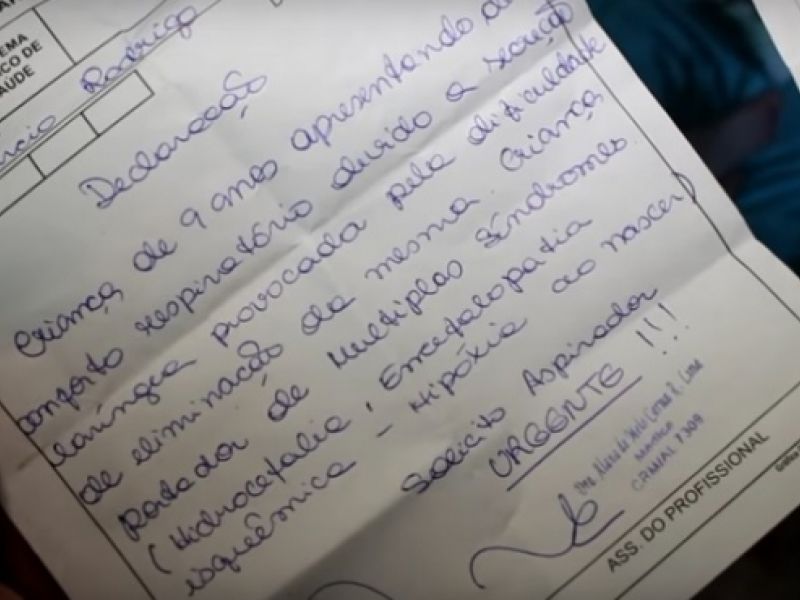 EMA
CO DE
AÚDE
ncio Rodrigo
Declaração
Criança de 9 anos apresentando d
conforto respiratório devido a secreção
laríngea provocada pela dificuldade
de eliminação da mesma. Criança
Portador de Multiplas Síndromes
(Hidrocefalia, Encefalopatia
isquêmica - Hipóxia ao nascer)
Solicito Aspirador
URGENTE !!!
Médico
CRM/AL 7309
ASS. DO PROFISSIONAL
Gráfica